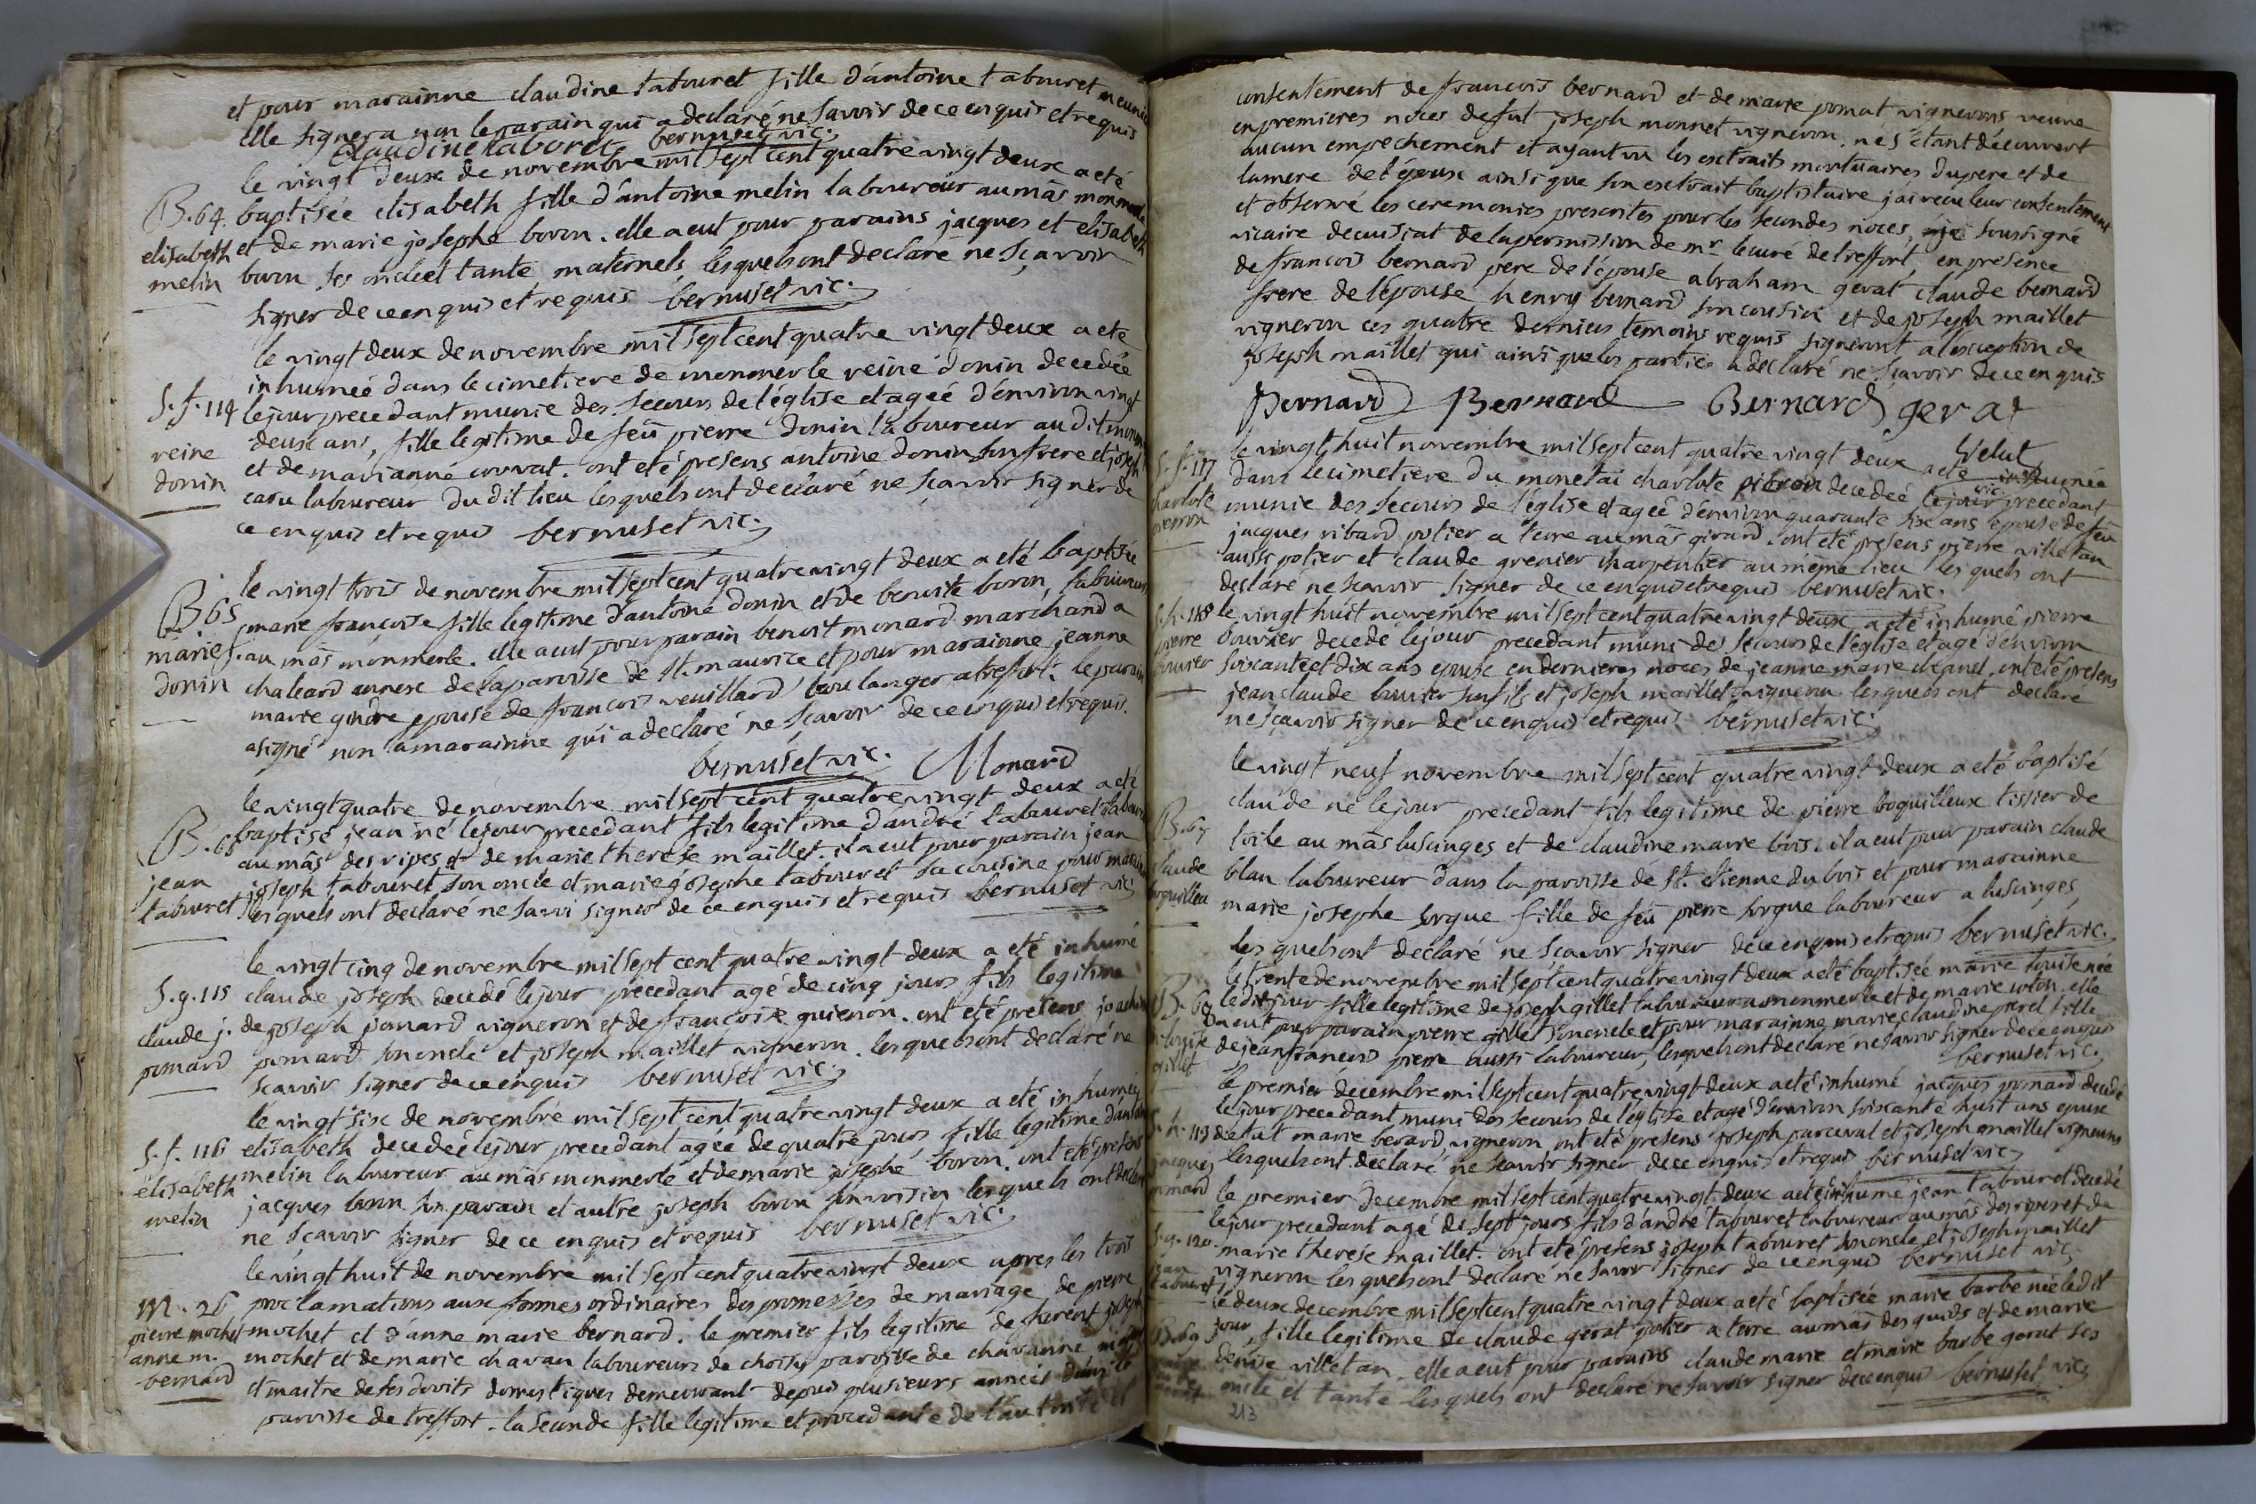 et pour marainne claudine tabouret fille d'antoine tabouret meunier
elle signera non le parain qui a declaré ne savoir de ce enquis et requis
Claudine taboret bernuset vic.
le vingt deux de novembre mil sept cent quatre vingt deux a eté
B. 64. baptisée elisabeth fille d'antoine melin laboureur au mâs monmerle
elisabeth et de marie josephe boron. elle a eut pour parains jacques et elisabeth
melin boron ses oncle et tante maternels lesquels ont declare ne sçavoir
signer de ce enquis et requis bernuset vic.
le vingt deux de novembre mil sept cent quatre vingt deux a eté
inhumée dans le cimetiere de monmerle reine donin decedée
S. f. 114 le jour precedant munie des secours de l'église et agée d'environ vingt
reine deux ans, fille legitime de feû pierre donin laboureur au dit monmerle
donin et de marianne couvat. ont eté presens antoine donin son frere et joseph
caru laboureur du dit lieu lesquels ont declaré ne sçavoir signer de
ce enquis et requis bernuset vic.
le vingt trois de novembre mil sept cent quatre vingt deux a eté baptisée
B 65 marie francoise fille legitime d'antoine donin et de benoite boron, laboureur
marie f. au mâs monmerle. elle a eut pour parain benoit monard marchand a
donin chaleard annexe de la paroisse de st. maurice et pour marainne jeanne
marie gindre epouse de francois veuillard boulanger a treffort. le parain
a signé non la marainne qui a declaré ne sçavoir de ce enquis et requis.
bernuset vic. Monard
le vingt quatre de novembre mil sept cent quatre vingt deux a eté
B. 66 baptisé jean né le jour precedant fils legitime d'andré tabouret laboureur
au mâs des ripes et de marie therese maillet. il a eut pour parain jean
jean joseph tabouret son oncle et marie josephe tabouret sa cousine pour marainne
tabouret lesquels ont declaré ne savoi signer de ce enquis et requis bernuset vic.
le vingt cinq de novembre mil sept cent quatre vingt deux a eté inhumé
S. g. 115 claude joseph decedé le jour precedant agé de cinq jours fils legitime
claude j. de joseph pomard vigneron et de francoise guienon. ont eté presens joachim
pomard pomard son oncle et joseph maillet vigneron. lesquels ont declaré ne
scavoir signer de ce enquis bernuset vic.
le vingt six de novembre mil sept cent quatre vingt deux a eté inhumée
S. f. 116 elisabeth decedeé le jour precedant agée de quatre jours fille legitime d'antoine
élisabeth melin laboureur au mâs monmerle et de marie josephe boron. ont eté presens
melin jacques boron son parain et autre joseph boron son voisin lesquels ont declaré
ne sçavoir signer de ce enquis et requis bernuset vic.
le vingt huit de novembre mil sept cent quatre vingt deux apres les trois
M. 26 proclamations aux formes ordinaires des promesses de mariage de pierre
pierre mochet mochet et d'anne marie bernard. le premier fils legitime de
anne m. mochet et de marie chavan laboureurs de choisy paroisse de chavanne
bernard et maitre de ses droits domestiques demeurant depuis plusieurs années dans la
paroisse de treffort. la seconde fille legitime et procedante de l'autorité et
consentement de francois bernard et de marie pomat vignerons veuve
en premieres noces de fut joseph monnet vigneron. ne s'etant découvert
aucun empechement et ayant vû les extraits mortuaires du pere et de
la mere de l'époux ainsi que son extrait baptistaire j'ai recu leur consentement
et observé les ceremonies prescrites pour les secondes noces, je soussigné
vicaire de cuisiat de la permission de mr. le curé de treffort, en presence
de francois bernard pere de l'épouse abraham gerat claude bernard
frere de l'epouse henry bernard son cousin et de joseph maillet
vigneron ces quatre derniers temoins requis signeront a l'exception de
joseph maillet qui ainsi que les parties a declaré ne sçavoir de ce enquis
Bernard Bernard Bernard gerat
Velut vic.
le vingt huit novembre mil sept cent quatre vingt deux a eté inhumée
S. f. 117 dans le cimetiere du monetai charlote decedeé le jour precedant
charlote munie des secours de l'église et ageé d'environ quarante six ans epouse de feu
jacques ribard potier a terre au mâs girard. ont eté presens pierre villetan
aussi potier et claude grenier charpentier au même lieu lesquels ont
declaré ne scavoir signer de ce enquis et requis bernuset vic.
S. h. 118 le vingt huit novembre mil sept cent quatre vingt deux a eté inhumé pierre
pierre bouvier decedé le jour precedant muni des secours de l'église et agé d'environ
bouvier soixante et dix ans epoux en dernieres noces de jeanne marie ont eté presens
jean claude bouvier son fils et joseph maillet vigneron lesquels ont declaré
ne sçavoir signer de ce enquis et requis bernuset vic.
le vingt neuf novembre mil sept cent quatre vingt deux a eté baptisé
claude né le jour precedant fils legitime de pierre boquilleux tissier de
B. 67 toile au mâs lucinges et de claudine marie bois. il a eut pour parain claude
claude blan laboureur dans la paroisse de st. etienne du bois et pour marainne
boquilleu marie josephe sorgue fille de feû pierre sorgue laboureur a lucinges,
lesquels ont declaré ne sçavoir signer de ce enquis et requis bernuset vic.
le trente de novembre mil sept cent quatre vingt deux a eté baptisée marie louise née
B. 68 le dit jour fille legitime de joseph gillet laboureur a monmerle et de marie colon. elle
a eut pour parain pierre gillet son oncle et pour marainne marie claudine perel fille
gillet de jean francois pierre aussi laboureur, lesquels ont declaré ne savoir signer de ce enquis
bernuset vic.
le premier decembre mil sept cent quatre vingt deux a eté inhumé jacques pomard decedé
le jour precedant muni des secours de l'eglise et agé d'environ soixante huit ans epoux
S. h. 119 de fut marie berard, vigneron ont eté presens joseph parceval et joseph maillet vignerons
jacques lesquels ont declaré ne scavoir signer de ce enquis et requis bernuset vic.
pomard le premier decembre mil sept cent quatre vingt deux a eté inhumé jean tabouret decedé
le jour precedant agé de sept jours fils d'andré tabouret laboureur au mâs des ripes et de
S. g. 120 marie therese maillet. ont eté presens joseph tabouret son oncle et joseph maillet
jean vigneron lesquels ont declaré ne savoir signer de ce enquis bernuset vic.
tabouret le deux decembre mil sept cent quatre vingt deux a eté baptisée marie barbe née le dit
B. 69 jour, fille legitime de claude gerat potier a terre au mâs des guids et de marie
denise villetan. elle a eut pour parains claude marie et marie barbe gerat ses
oncle et tante lesquels ont declaré ne savoir signer de ce enquis bernuset vic.
213